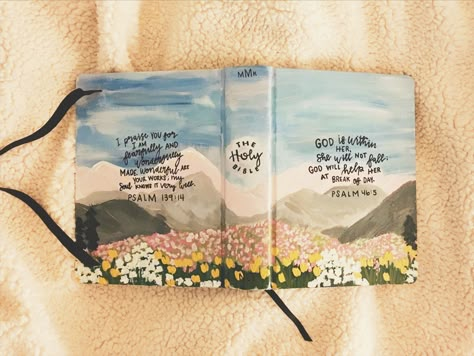 I PRAISE YOU FOR
I AM
fearfully AND
wonderfully
MADE. WONDERFUL ARE
YOUR WORKS; MY
SOUL KNOWS IT VERY WELL.
PSALM 139:14
THE
Holy
BIBLE
GOD is WITHIN
HER;
She WILL NOT fall;
GOD WILL help HER
AT BREAK OF DAY.
PSALM 46:5